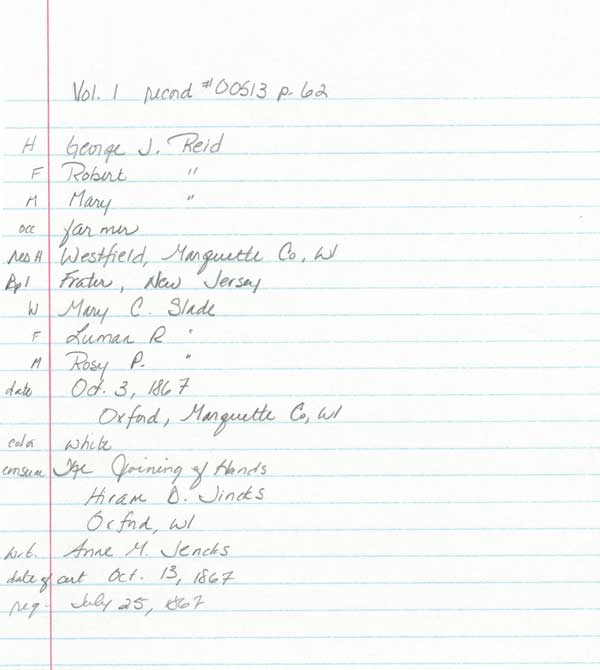 Vol. 1 record #00513 p. 62
H George J. Reid
F Robert "
M Mary "
occ farmer
res H Westfield, Marquette Co, WI
Bpl Frater, New Jersey
W Mary C. Slade
F Luman R "
M Rosy P. "
date Oct. 3, 1867
Oxford, Marquette Co, WI
color white
The Joining of Hands
Hiram D. Jincks
Oxford, WI
Anne M. Jencks
date of cert Oct. 13, 1867
reg - July 25, 1867